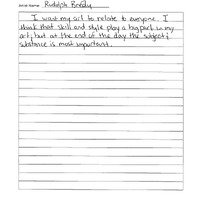 Artist Name: Rudolph Brody
I want my art to relate to everyone. I
think that skill and style play a big part in my
art, but at the end of the day the subject/
substance is most important.